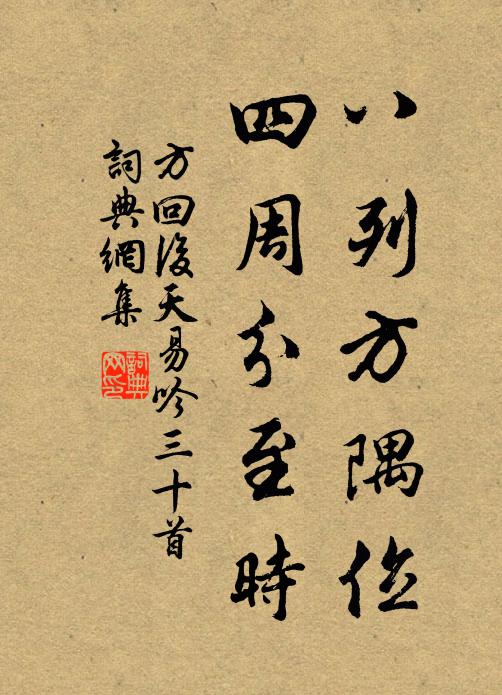 八列方隅位
四周分至時
方回後天易吟三十首
詞典網集
詞典网印